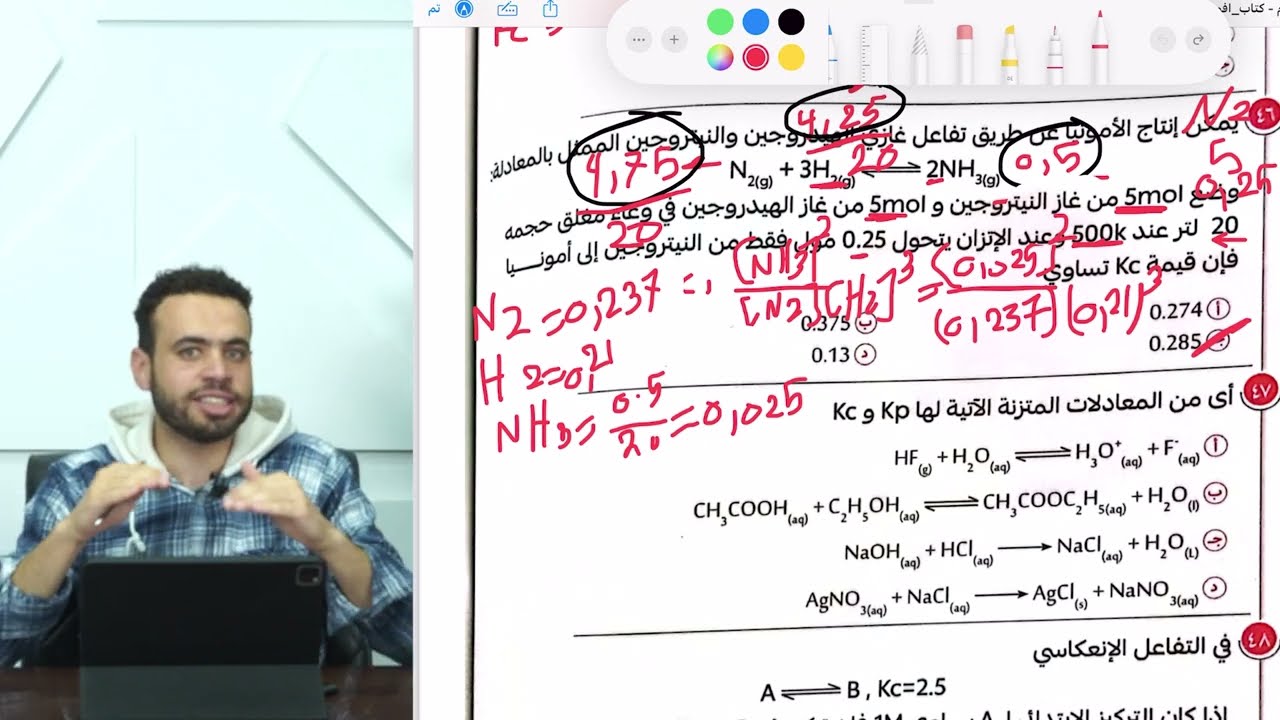 تم
م - كتاب_افد
٤٦ يمكن إنتاج الأمونيا عن طريق تفاعل غازي الهيدروجين والنيتروجين الممثل بالمعادلة:
N2(g) + 3H2(g) ⇌ 2NH3(g)
وضع 5mol من غاز النيتروجين و 5mol من غاز الهيدروجين في وعاء مغلق حجمه
20 لتر عند 500k وعند الإتزان يتحول 0.25 مول فقط من النيتروجين إلى أمونـــيا
فإن قيمة Kc تساوي
أ 0.274
ب 0.375
ج 0.285
د 0.13
4,25
20
4,75
20
0,5
N2
5
0,25
N2 = 0,237
H2 = 0,21
NH3 = 0.5/20 = 0,025
= [NH3]² / [N2][H2]³ = (0,025)² / (0,237)(0,21)³
٤٧ أى من المعادلات المتزنة الآتية لها Kp و Kc
أ HF(g) + H2O(aq) ⇌ H3O+(aq) + F-(aq)
ب CH3COOH(aq) + C2H5OH(aq) ⇌ CH3COOC2H5(aq) + H2O(l)
ج NaOH(aq) + HCl(aq) → NaCl(aq) + H2O(L)
د AgNO3(aq) + NaCl(aq) → AgCl(s) + NaNO3(aq)
٤٨ في التفاعل الإنعكاسي
A ⇌ B , Kc=2.5